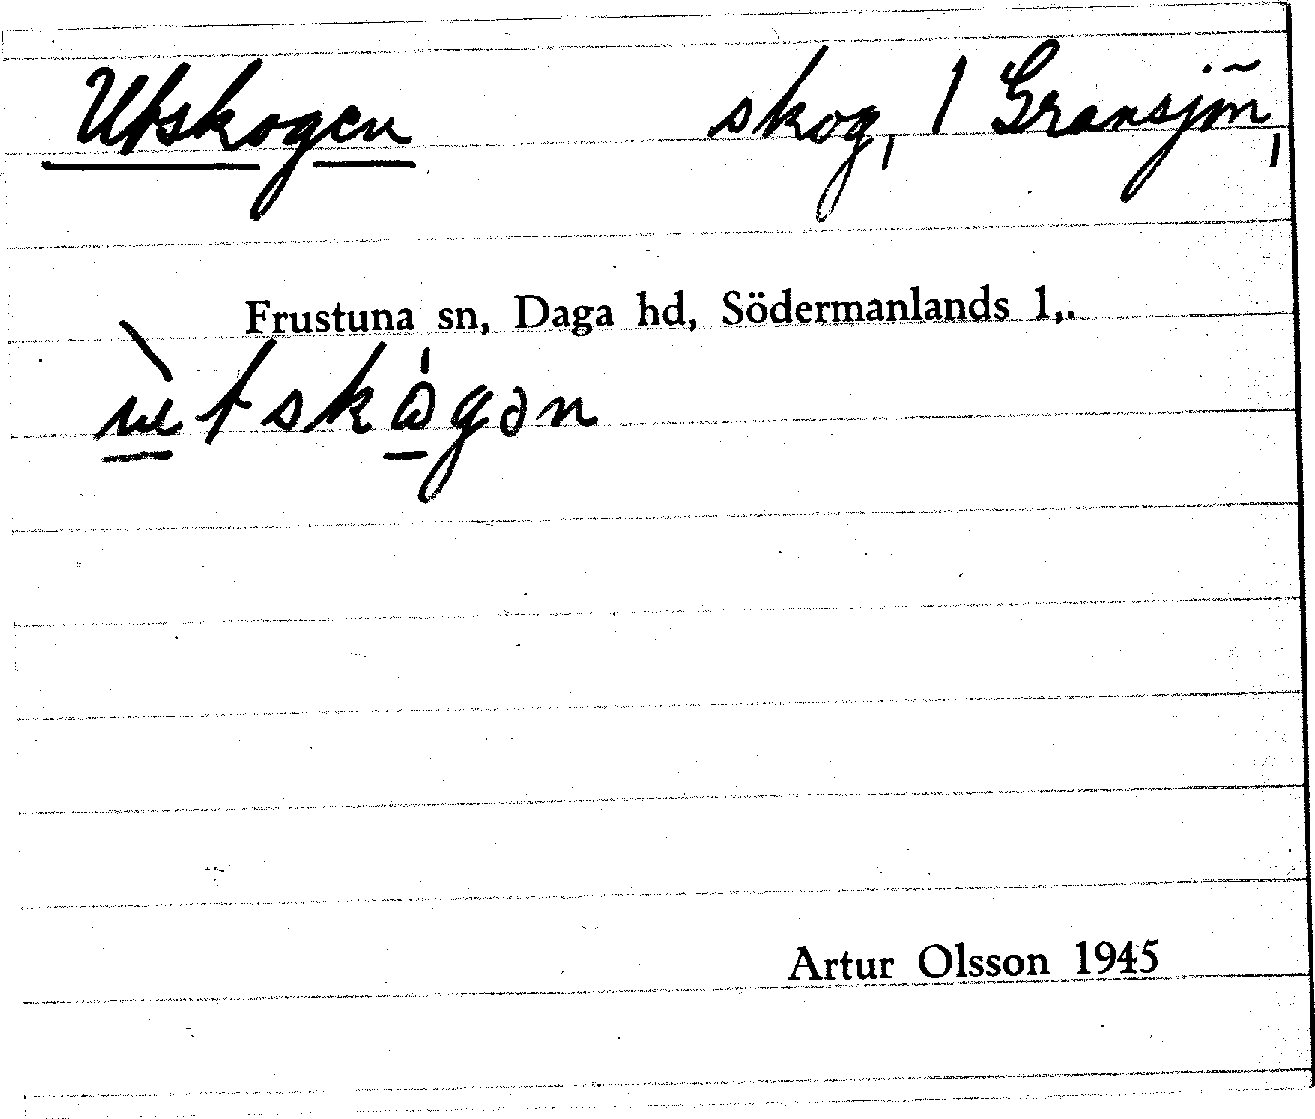 Utskogen skog, 1 Gransjön,
Frustuna sn, Daga hd, Södermanlands l,.
ù̱tskǻ̱gən
Artur Olsson 1945